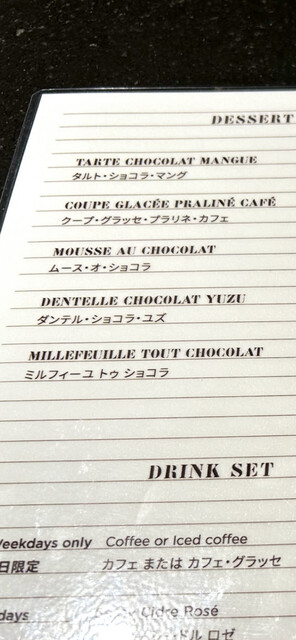 DESSERT
TARTE CHOCOLAT MANGUE
タルト・ショコラ・マング
COUPE GLACÉE PRALINÉ CAFÉ
クープ・グラッセ・プラリネ・カフェ
MOUSSE AU CHOCOLAT
ムース・オ・ショコラ
DENTELLE CHOCOLAT YUZU
ダンテル・ショコラ・ユズ
MILLEFEUILLE TOUT CHOCOLAT
ミルフィーユ トゥ ショコラ
DRINK SET
Weekdays only Coffee or Iced coffee
日限定 カフェ または カフェ・グラッセ
days Cidre Rosé
ドル ロゼ